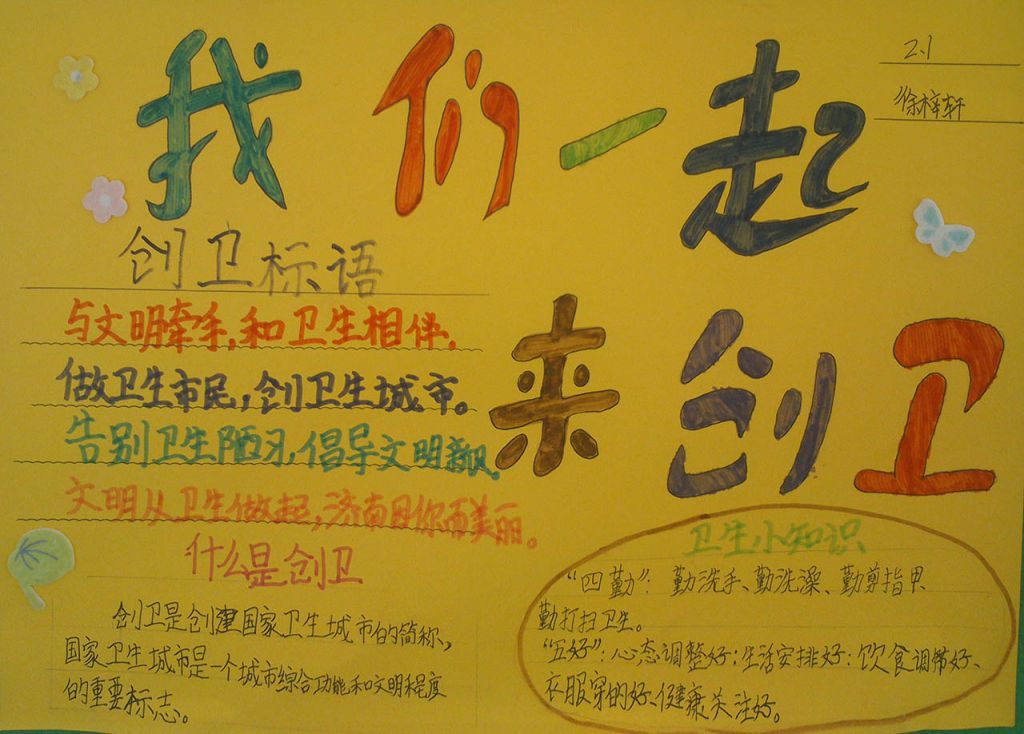 我们一起
来创卫
2.1
徐梓轩
创卫标语
与文明牵手,和卫生相伴.
做卫生市民,创卫生城市。
告别卫生陋习,倡导文明新风.
文明从卫生做起,济南因你而美丽。
什么是创卫
创卫是创建国家卫生城市的简称,
国家卫生城市是一个城市综合功能和文明程度
的重要标志。
卫生小知识
“四勤”:勤洗手、勤洗澡、勤剪指甲
勤打扫卫生。
“五好”:心态调整好;生活安排好;饮食调节好、
衣服穿的好、健康关注好。